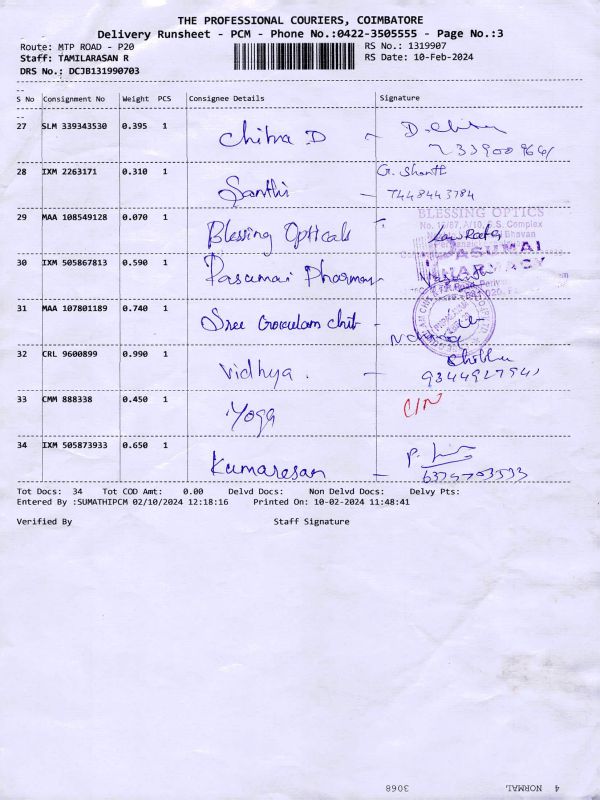 THE PROFESSIONAL COURIERS, COIMBATORE
Delivery Runsheet - PCM - Phone No.:0422-3505555 - Page No.:3
Route: MTP ROAD - P20 RS No.: 1319907
Staff: TAMILARASAN R RS Date: 10-Feb-2024
DRS No.: DCJB131990703
S No Consignment No Weight PCS Consignee Details Signature
27 SLM 339343530 0.395 1 Chitra D - D.Chitra
28 IXM 2263171 0.310 1 Santhi - G. Shanthi
7448443784
29 MAA 108549128 0.070 1 Blessing Opticals
BLESSING OPTICS
30 IXM 505867813 0.590 1 Pasumai Pharmacy
PASUMAI
PHARMACY
31 MAA 107801189 0.740 1 Sree Gowulam chit -
32 CRL 9600899 0.990 1 Vidhya . -
33 CMM 888338 0.450 1 Yoga
34 IXM 505873933 0.650 1 Kumaresan -
Tot Docs: 34 Tot COD Amt: 0.00 Delvd Docs: Non Delvd Docs: Delvy Pts:
Entered By :SUMATHIPCM 02/10/2024 12:18:16 Printed On: 10-02-2024 11:48:41
Verified By Staff Signature
4 NORMAL 3068